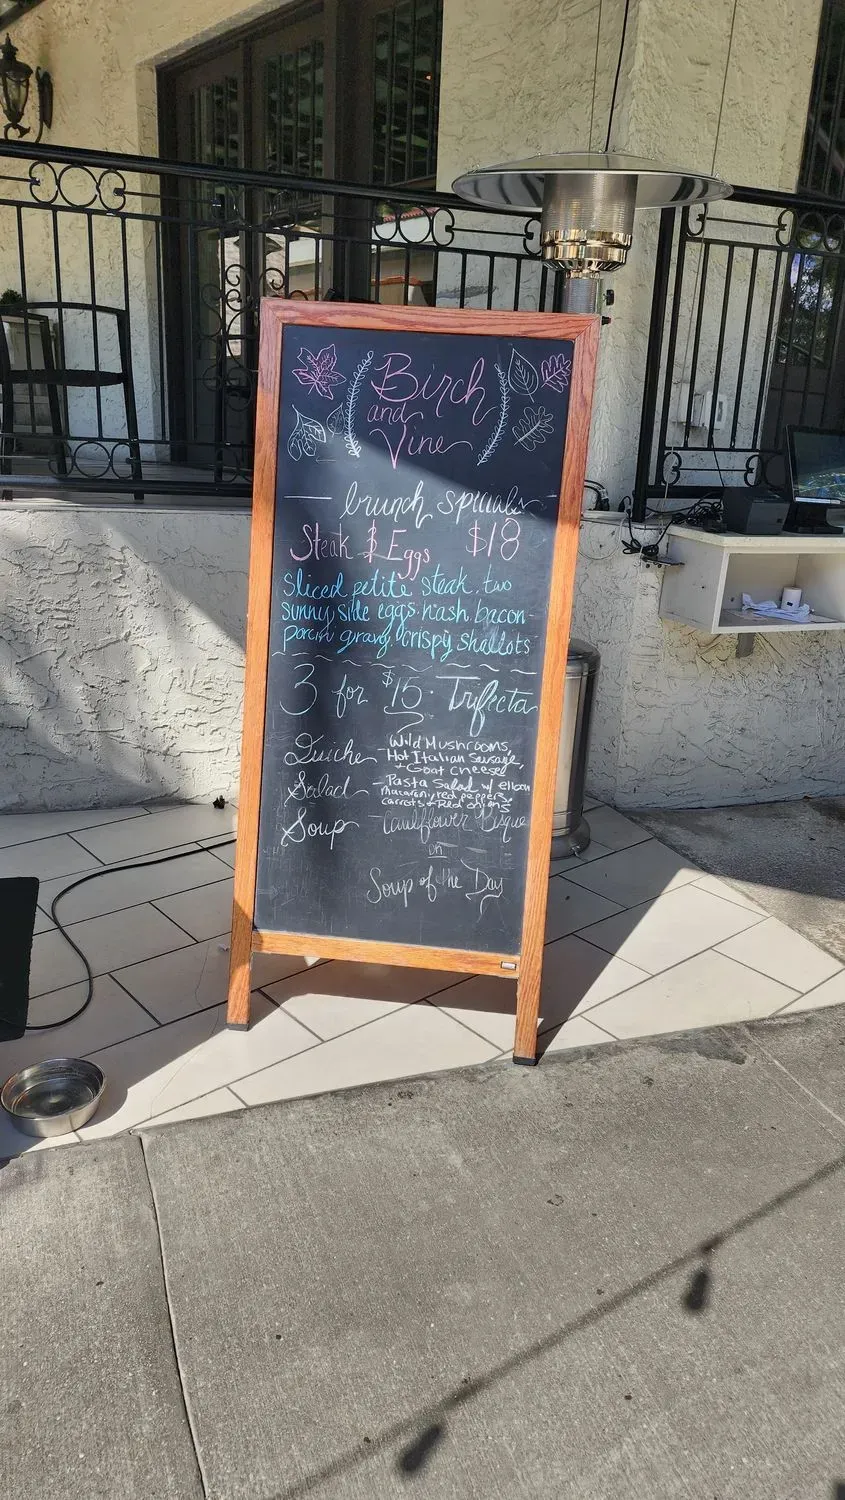 Birch
and
Vine
brunch specials
Steak & Eggs $18
sliced petite steak, two
sunny side eggs, hash, bacon-
porcini gravy, crispy shallots
3 for $15 · Trifecta
Quiche - Wild Mushrooms,
Hot Italian Sausage,
+ Goat cheese
Salad - Pasta Salad w/ elbow
macaroni, red peppers,
carrots + Red onions
Soup - Cauliflower Bisque
OR
Soup of the Day